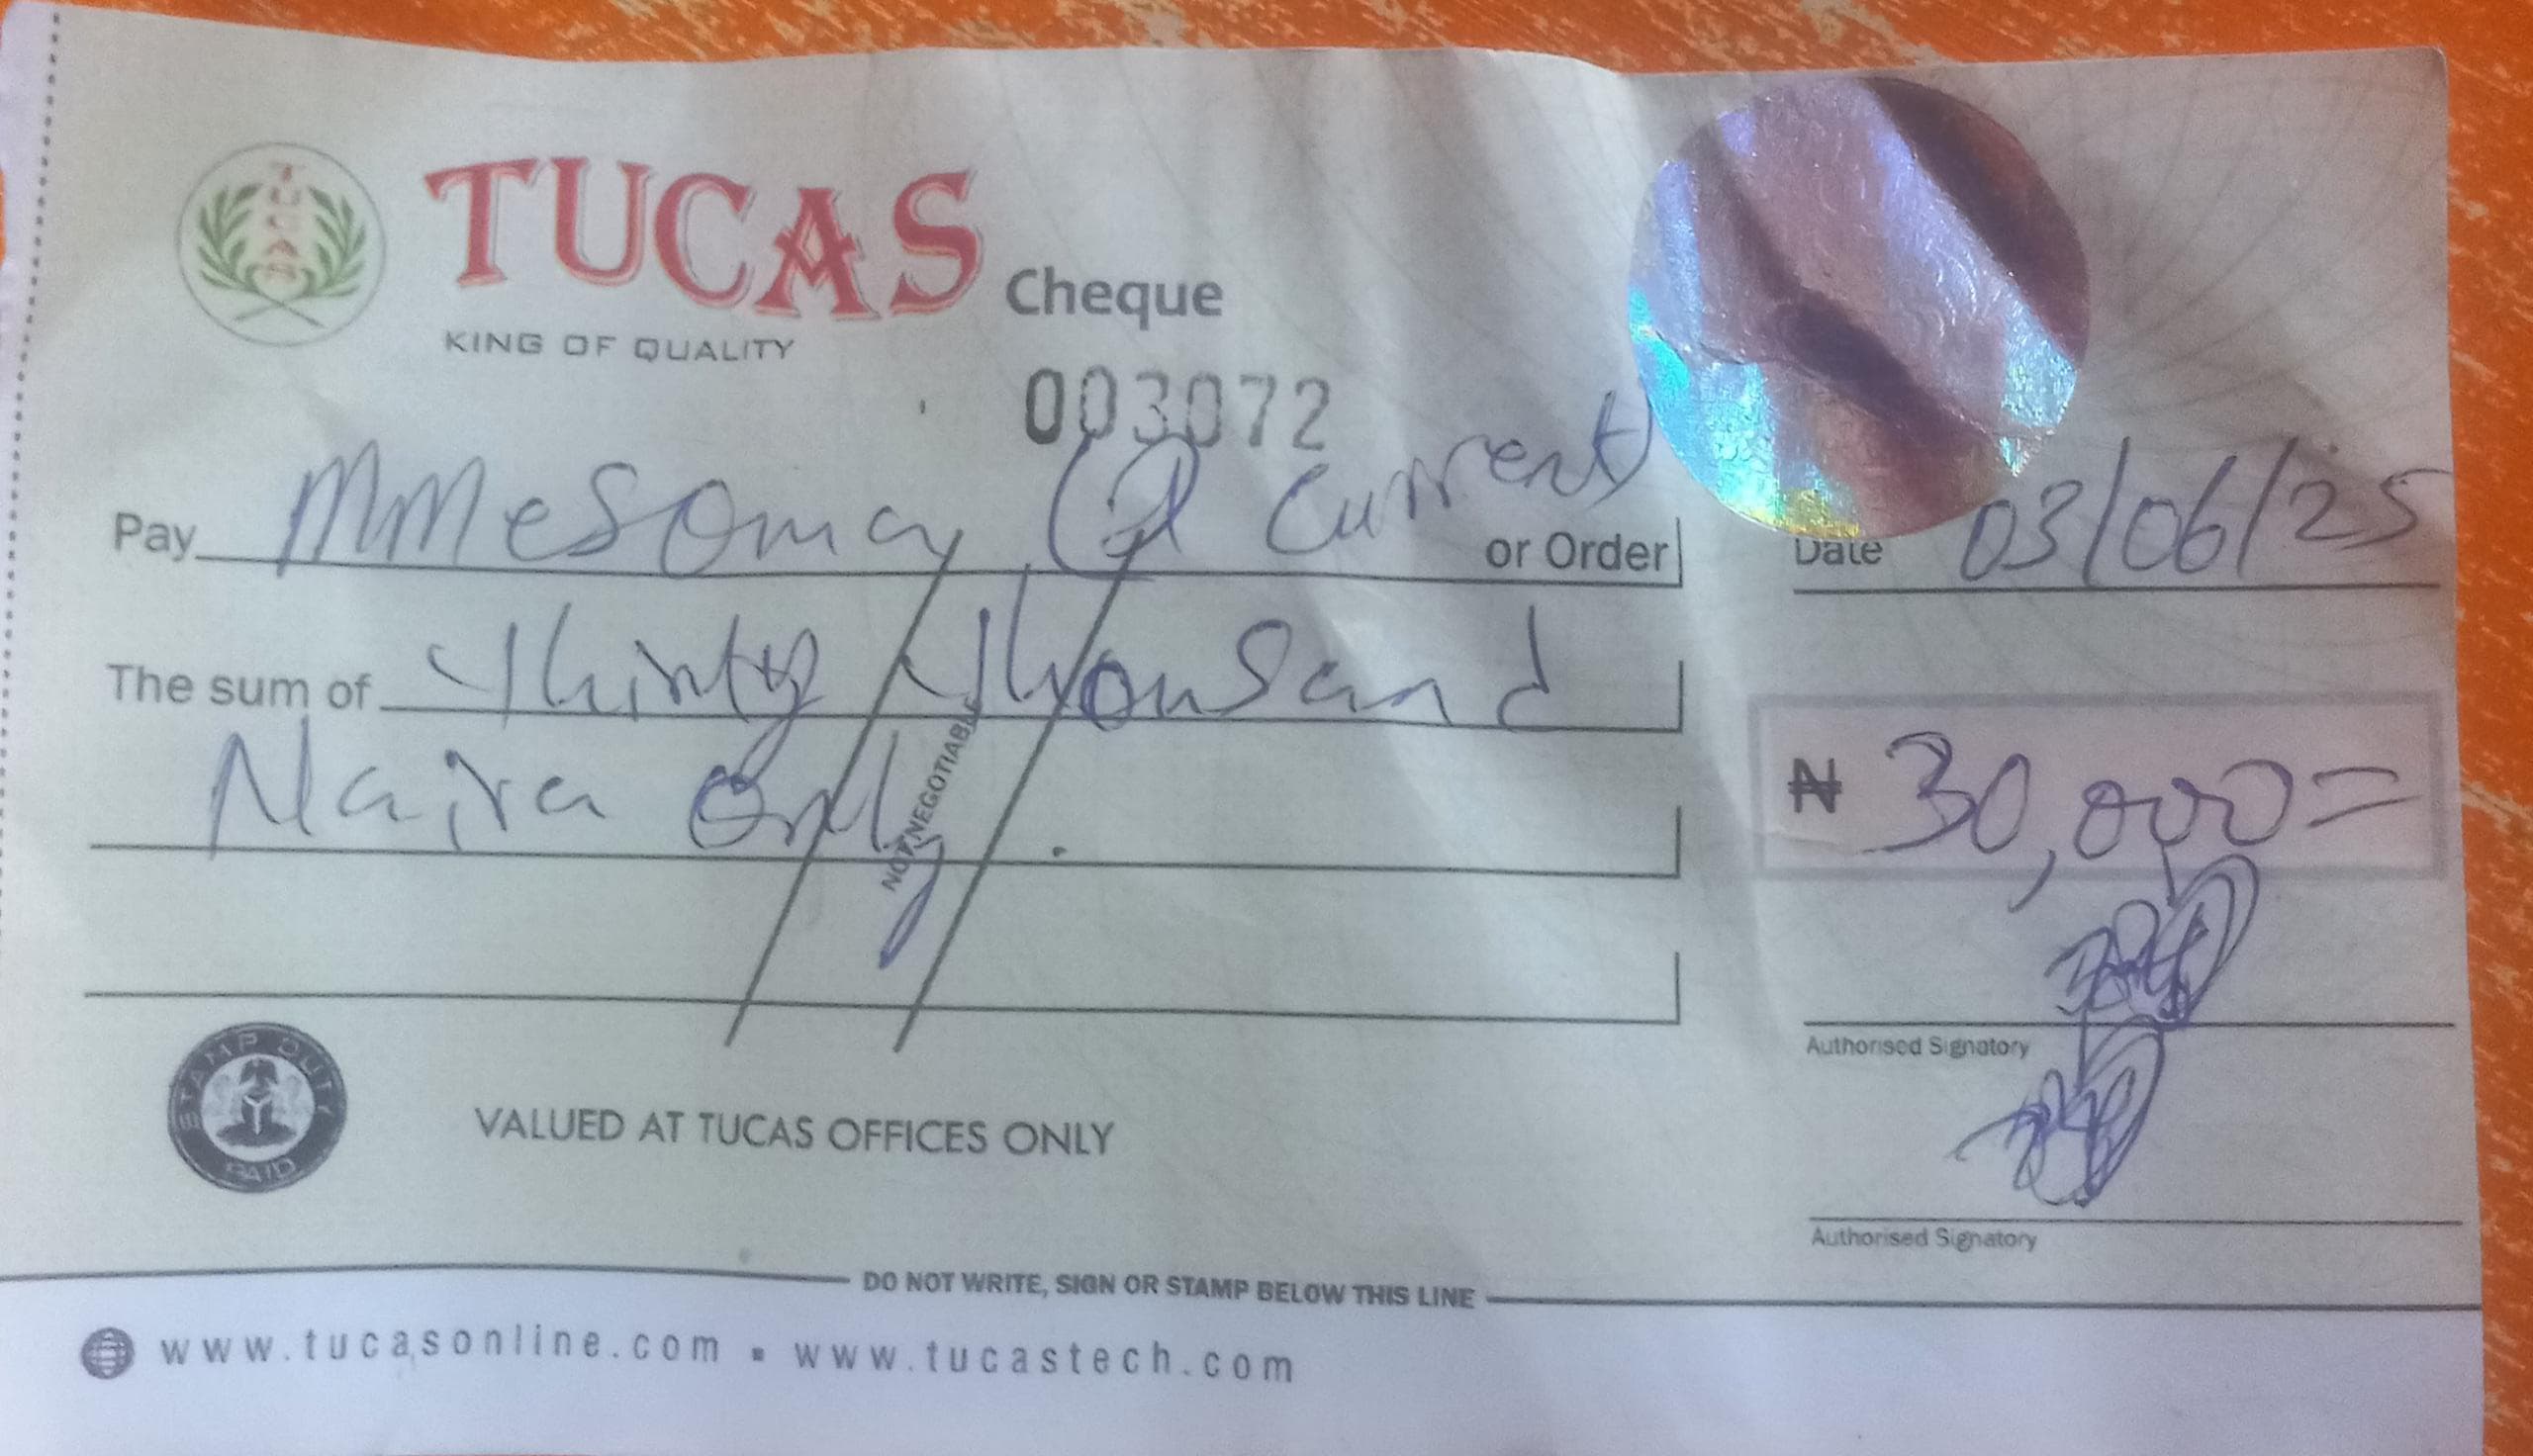 TUCAS
TUCAS Cheque
KING OF QUALITY
003072
Pay Mmesoma (@ Current) or Order
Date 03/06/25
The sum of Thirty Thousand
Naira Only.
₦ 30,000=
NOT NEGOTIABLE
Authorised Signatory
STAMP DUTY
PAID
VALUED AT TUCAS OFFICES ONLY
Authorised Signatory
DO NOT WRITE, SIGN OR STAMP BELOW THIS LINE
www.tucasonline.com ▪ www.tucastech.com